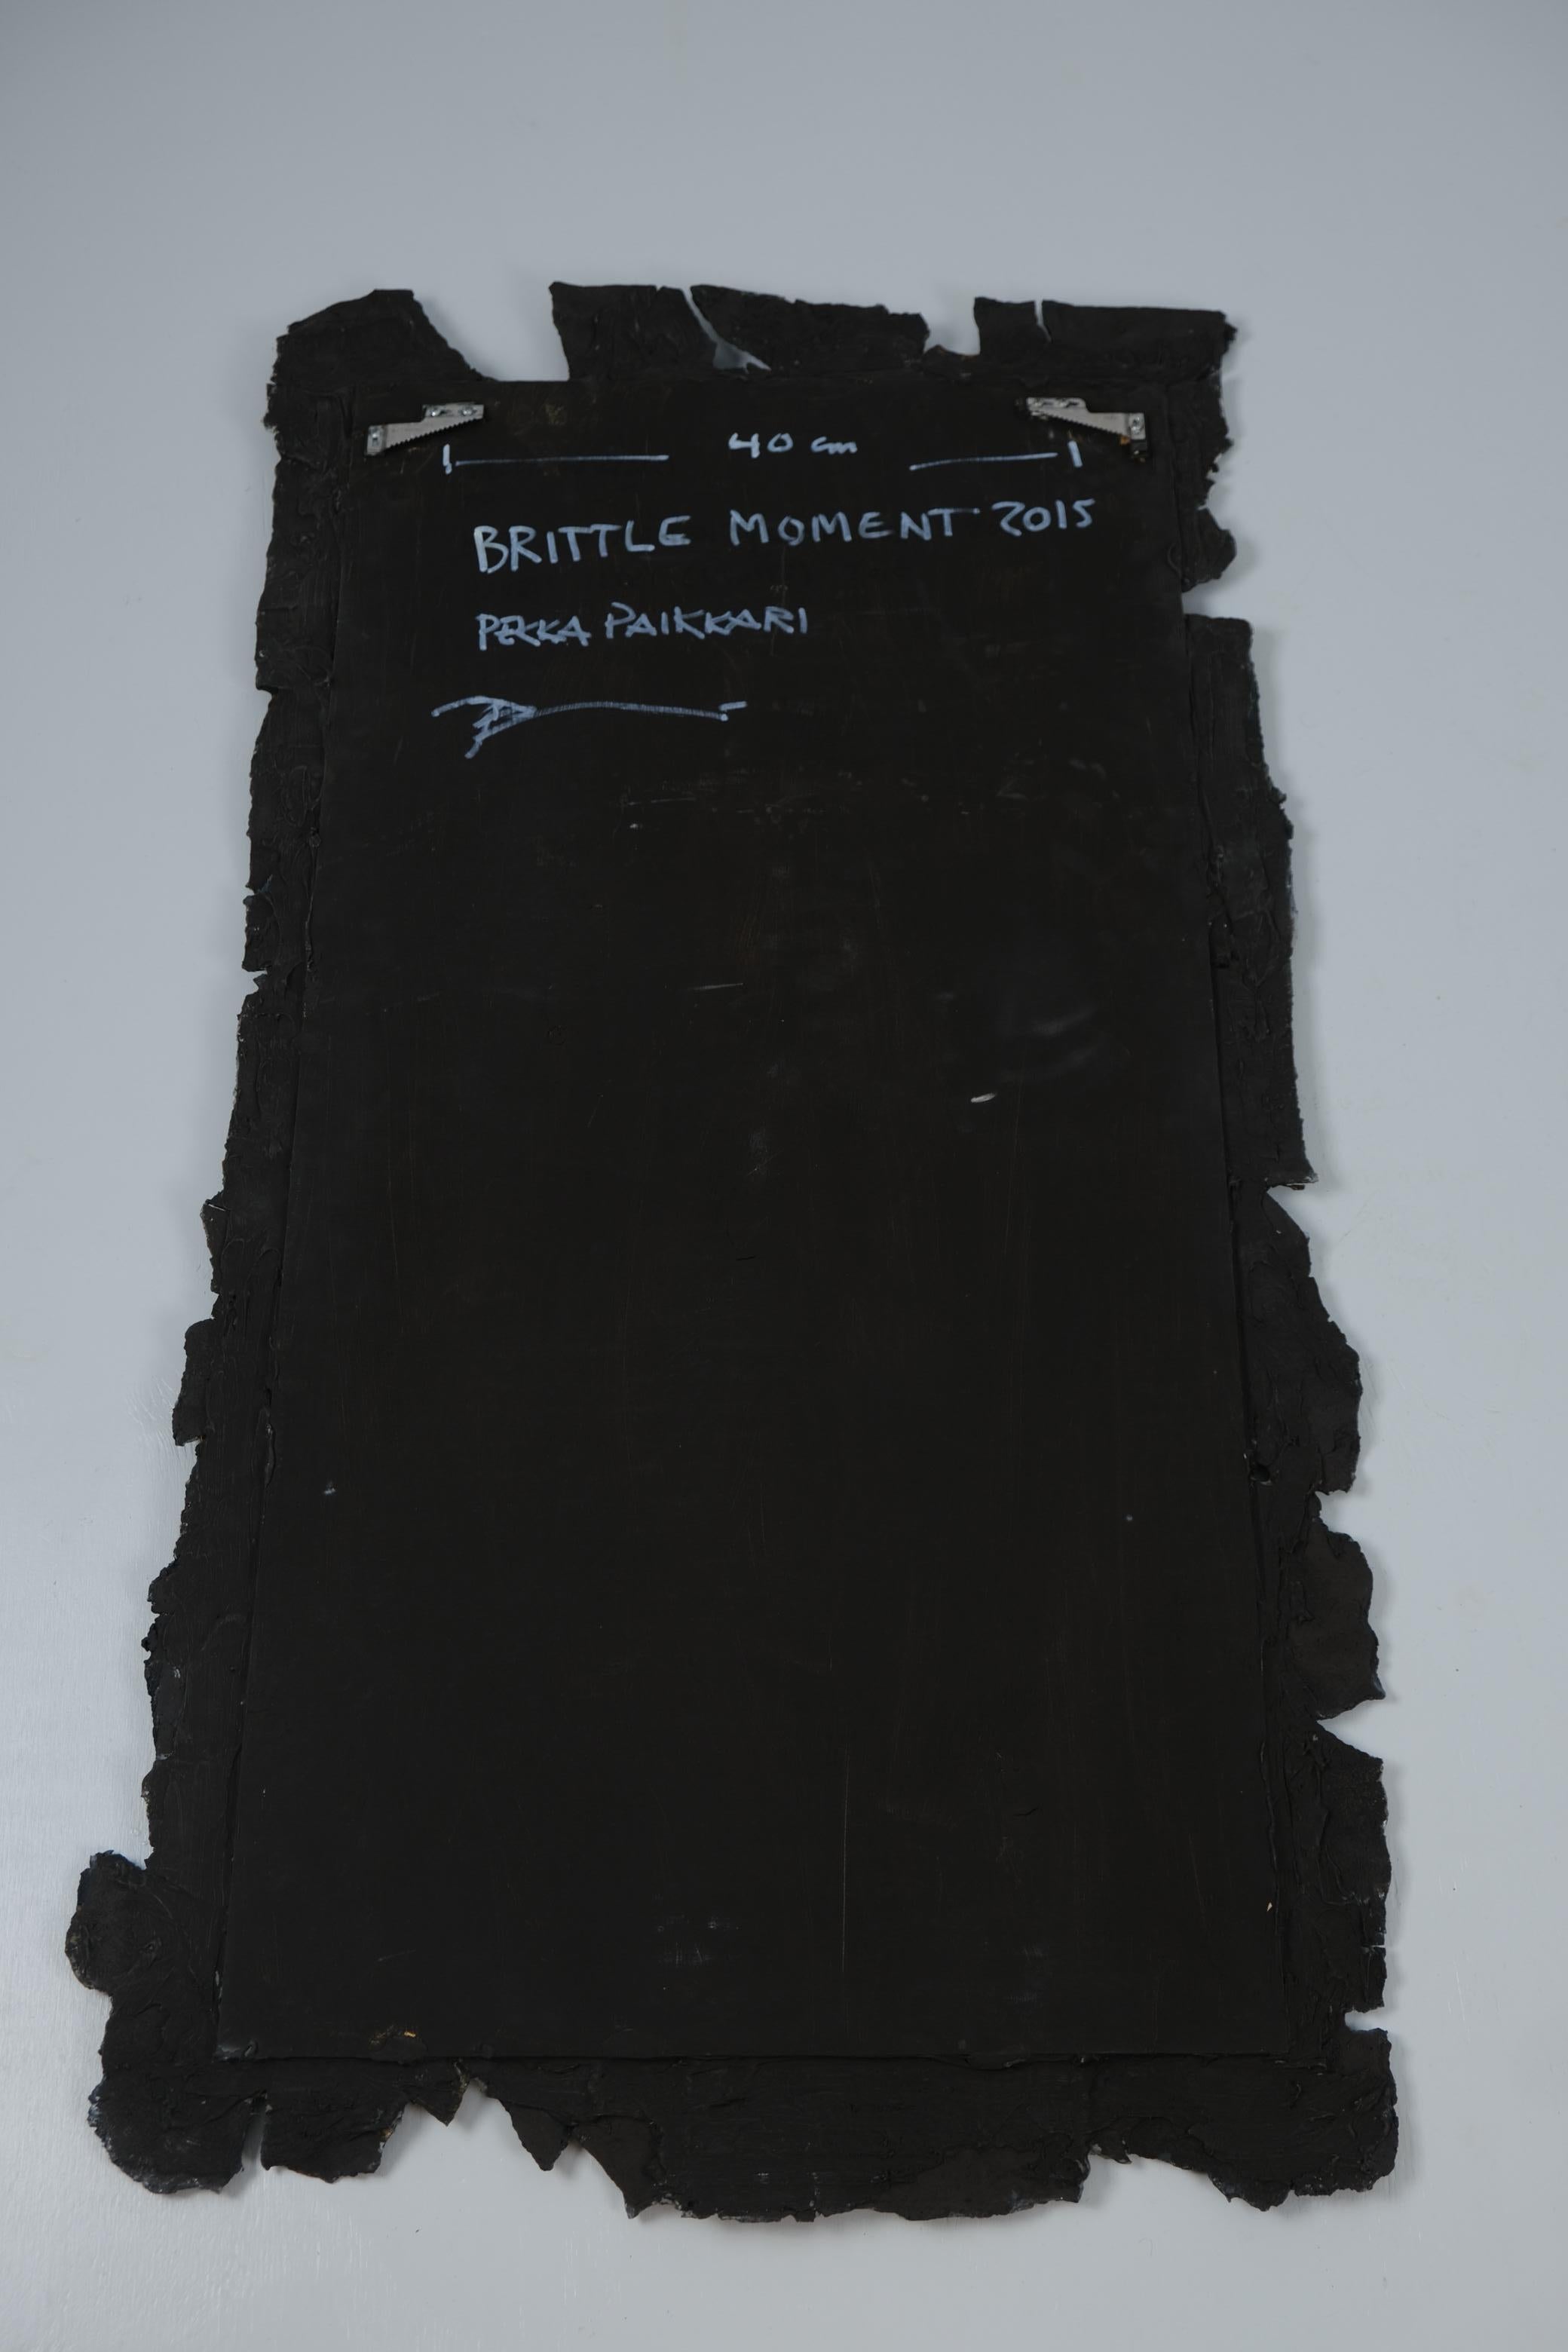 40 cm
BRITTLE MOMENT 2015
PEKKA PAIKKARI